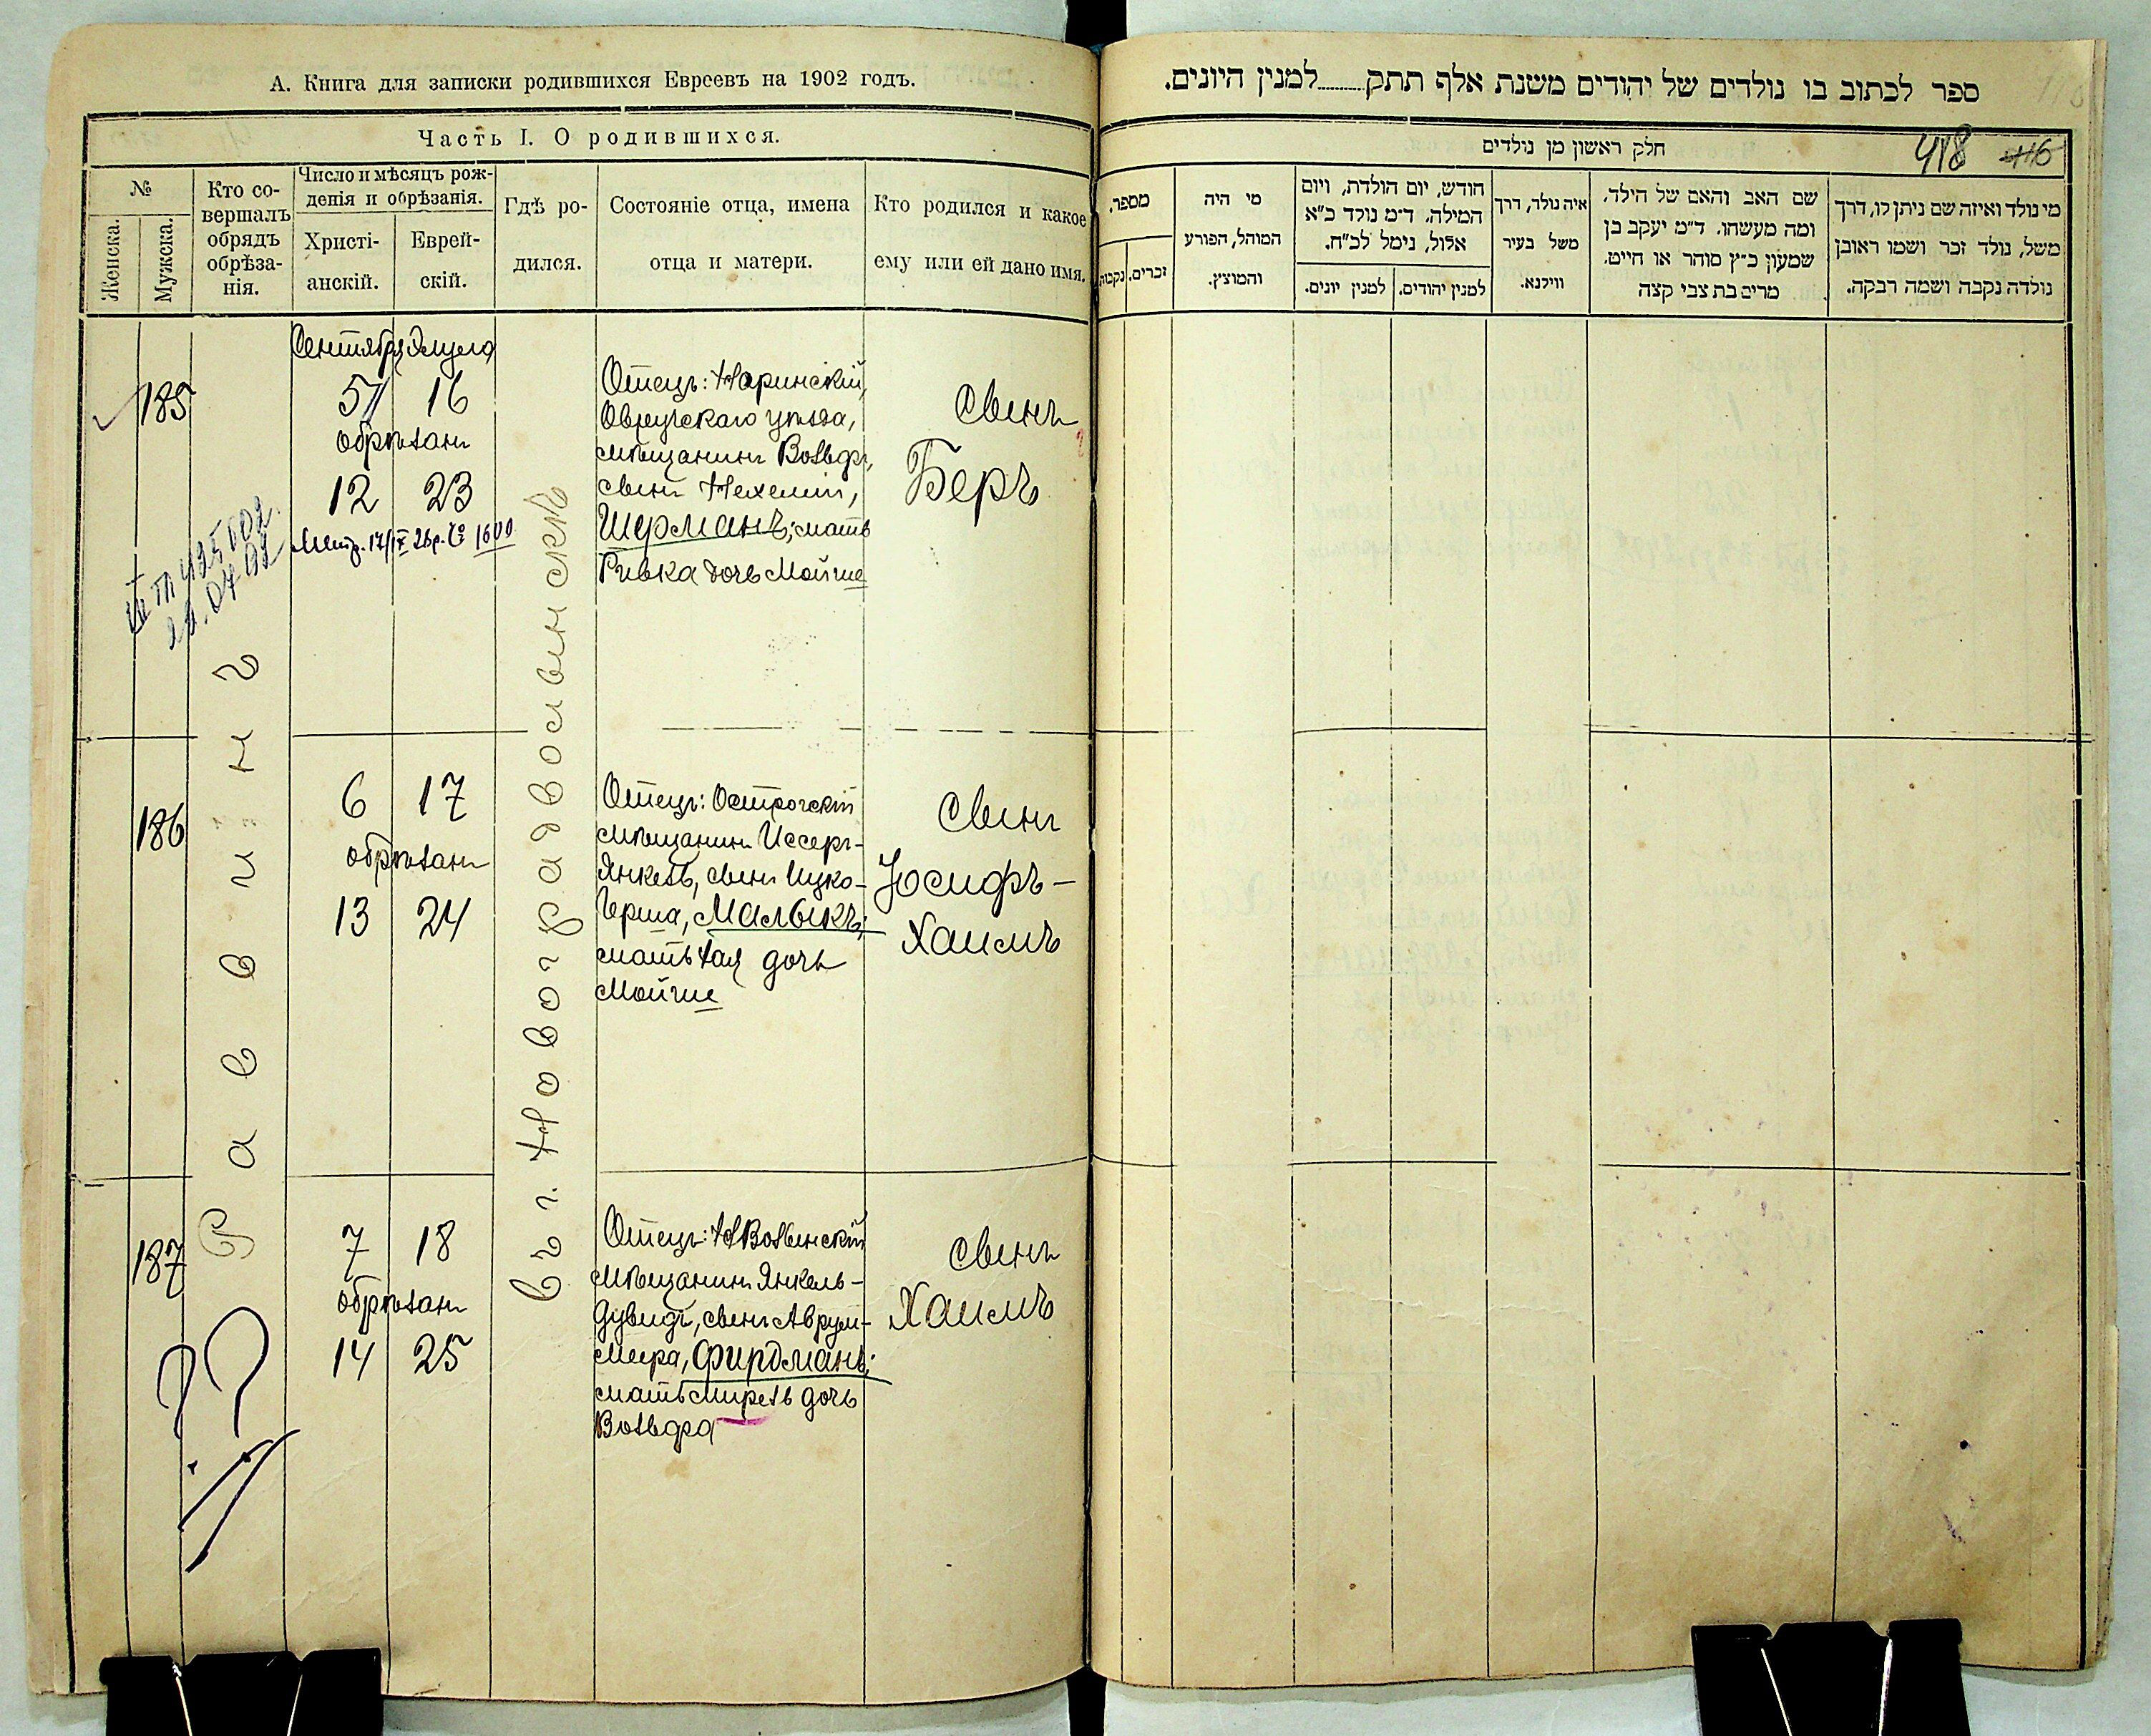 А. Книга для записки родившихся Евреевъ на 1902 годъ.
Часть I. О родившихся.
№
Женска.
Мужска.
Кто со-
вершалъ
обрядъ
обрѣза-
нія.
Число и мѣсяцъ рож-
денія и обрѣзанія.
Христі-
анскій.
Еврей-
скій.
Гдѣ ро-
дился.
Состояніе отца, имена
отца и матери.
Кто родился и какое
ему или ей дано имя.
Равинъ
въ г. Новоградволынскѣ
185
Сентября Элула
5 16
обрѣзанъ
12 23
1600
Отецъ: Наринскій,
Овручскаго уѣзда,
мѣщанинъ Вольфъ,
сынъ Нехеміи,
Шерманъ; мать
Ривка дочь Мойше
сынъ
Беръ
186
6 17
обрѣзанъ
13 24
Отецъ: Острогскій
мѣщанинъ Иссеръ-
Янкель, сынъ Ицко-
Герша, Малыкъ;
мать Хая дочь
Мойше
сынъ
Юсифъ-
Хаимъ
187
7 18
обрѣзанъ
14 25
Отецъ: НВолынскій
мѣщанинъ Янкель-
Дувидъ, сынъ Аврум-
Меера, Фирдманъ;
мать Мирель дочь
Вольфа
сынъ
Хаимъ
ספר לכתוב בו נולדים של יהודים משנת אלף תתק........למנין היונים.
418 416
חלק ראשון מן נולדים
מספר.
זכרים.
נקבות
מי היה
המוהל, הפורע
והמוצץ.
חודש, יום הולדת, ויום
המילה. ד״מ נולד כ״א
אלול, נימל לכ״ח.
למנין יהודים.
למנין יונים.
איה נולד, דרך
משל בעיר
ווילנא.
שם האב והאם של הילד,
ומה מעשהו. ד״מ יעקב בן
שמעון כ״ץ סוחר או חייט.
מרים בת צבי קצה
מי נולד ואיזה שם ניתן לו, דרך
משל, נולד זכר ושמו ראובן
נולדה נקבה ושמה רבקה.